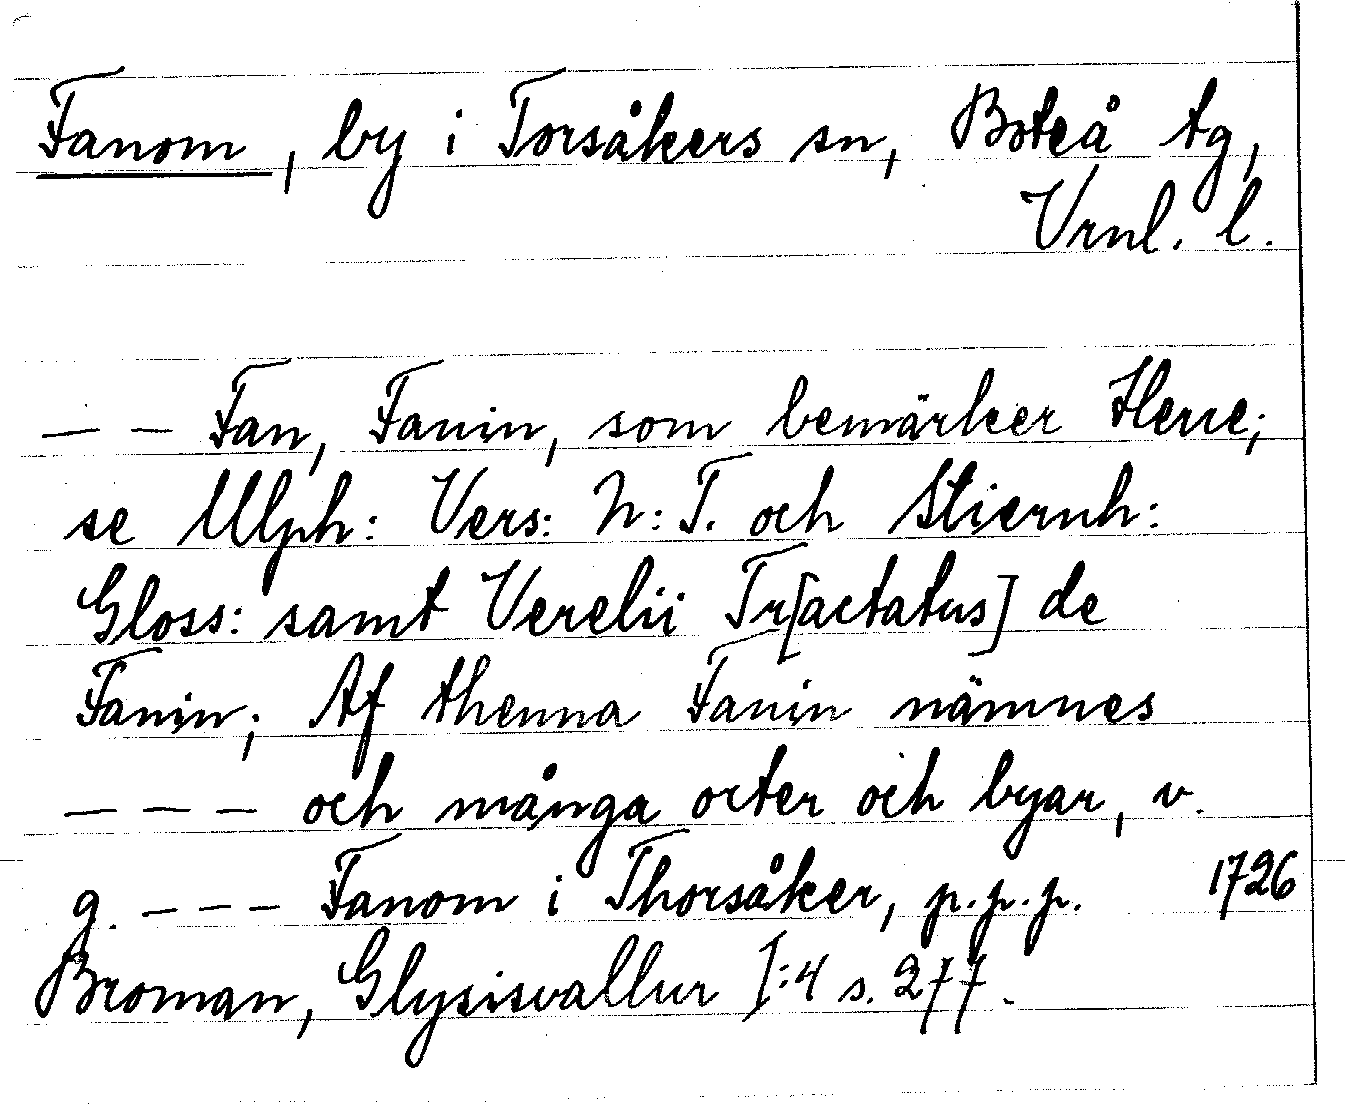 Fanom, by i Torsåkers sn, Boteå tg,
Vrnl. l.
— — Fan, Fanin, som bemärker Herre;
se Ulph: Vers: N: T. och Stiernh:
Gloss: samt Verelii Tr[actatus] de
Fanin; Af thenna Fanin nämnes
— — — och många orter och byar, v.
g. — — — Fanom i Thorsåker, p.p.p. 1726
Broman, Glysisvallur I:4 s. 277.